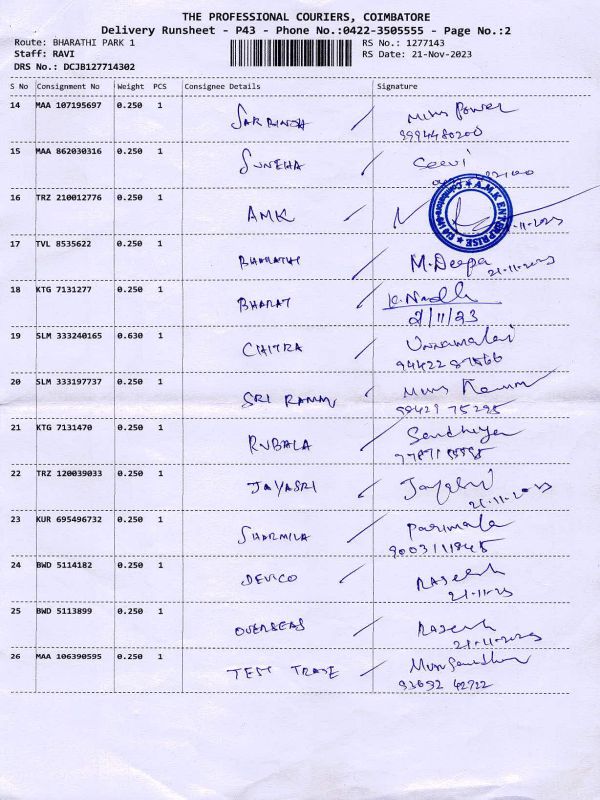 THE PROFESSIONAL COURIERS, COIMBATORE
Delivery Runsheet - P43 - Phone No.:0422-3505555 - Page No.:2
Route: BHARATHI PARK 1 RS No.: 1277143
Staff: RAVI RS Date: 21-Nov-2023
DRS No.: DCJB127714302
S No Consignment No Weight PCS Consignee Details Signature
14 MAA 107195697 0.250 1
9994480200
15 MAA 862030316 0.250 1 SUNEHA
16 TRZ 210012776 0.250 1 AMK
A.M.K ENTERPRISE
17 TVL 8535622 0.250 1 BHARATHI M.Deepa
21-11-2023
18 KTG 7131277 0.250 1 BHARAT
21/11/23
19 SLM 333240165 0.630 1 CHITRA Unnamalai
20 SLM 333197737 0.250 1 SRI RAMM
98421 75295
21 KTG 7131470 0.250 1 RUBALA Sandhiya
22 TRZ 120039033 0.250 1 JAYASRI Jayasri
21-11-2023
23 KUR 695496732 0.250 1 SHARMILA Parimala
9003111845
24 BWD 5114182 0.250 1 DEVICO Rajesh
21-11-23
25 BWD 5113899 0.250 1 OVERSEAS Rajesh
21-11-2023
26 MAA 106390595 0.250 1 TEST TRADE
93632 42722